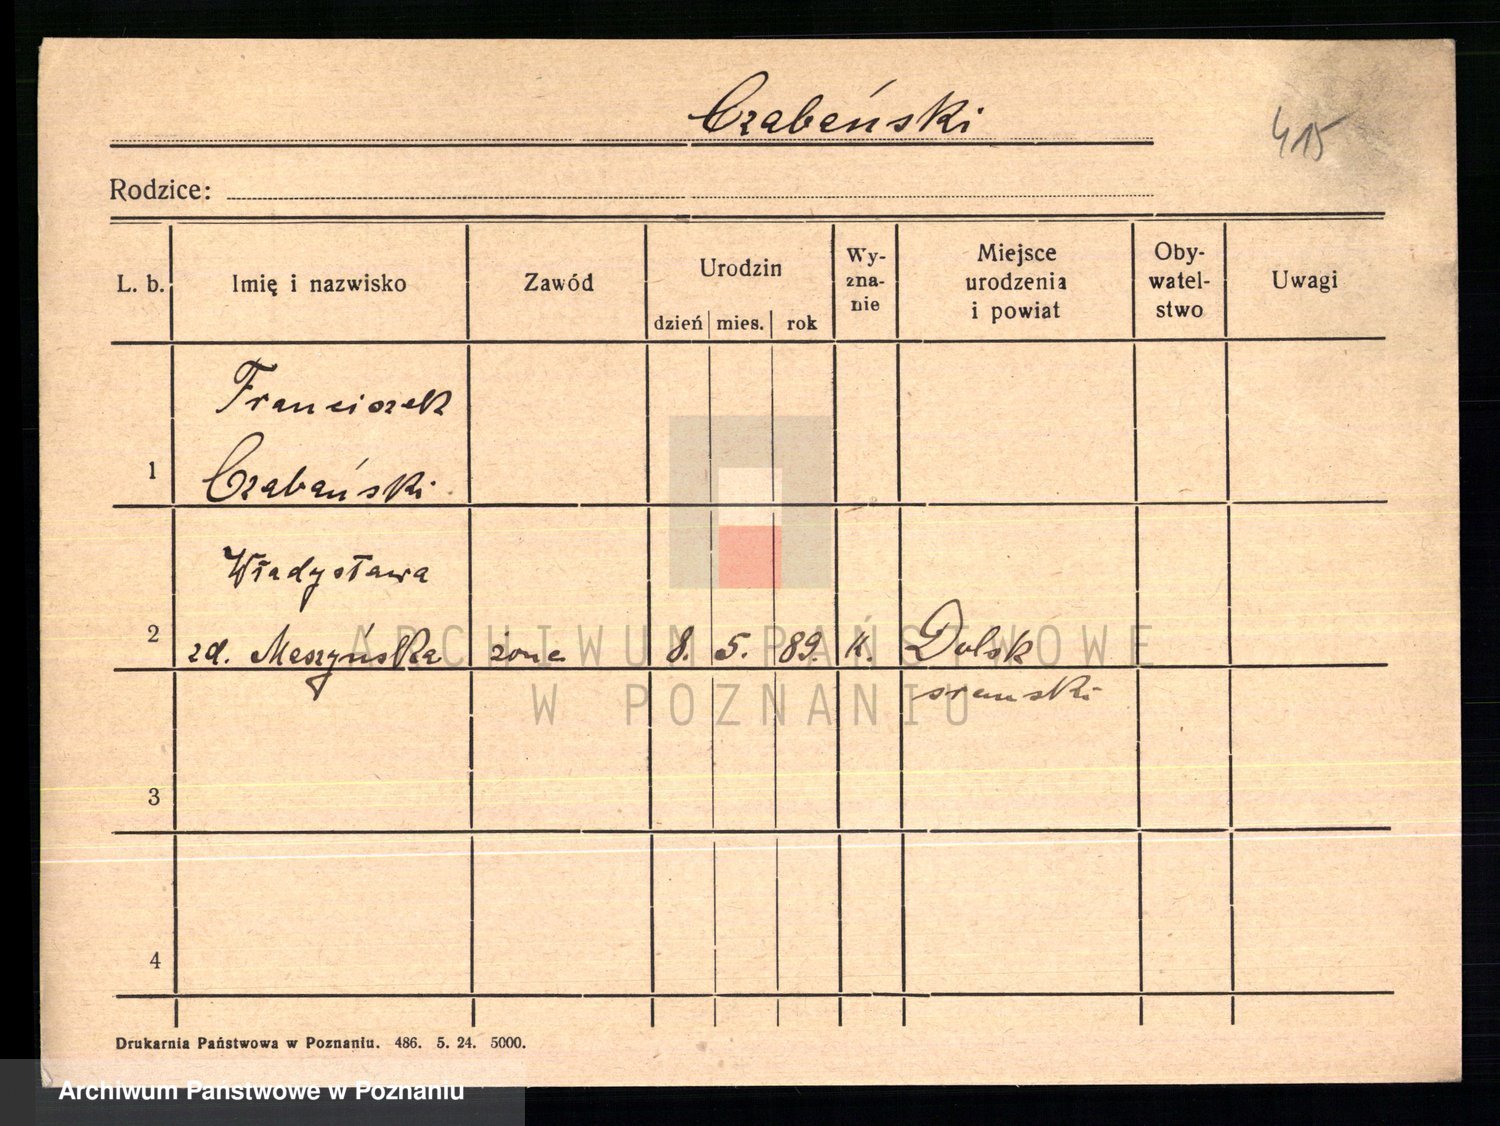 Czabański
415
Rodzice:
L. b. Imię i nazwisko Zawód Urodzin dzień mies. rok Wy-zna-nie Miejsce urodzenia i powiat Oby-watel-stwo Uwagi
Franciszek
1 Czabański
Władysława
2 zd. Maszyńska żona 8. 5. 89. K. Dolsk
śremski
3
4
Drukarnia Państwowa w Poznaniu. 486. 5. 24. 5000.
ARCHIWUM PAŃSTWOWE
W POZNANIU
Archiwum Państwowe w Poznaniu